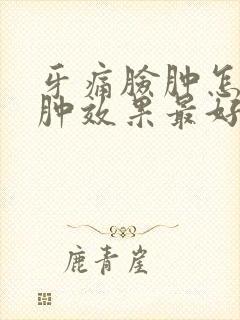 牙痛脸肿怎
肿效果最好
鹿青崖